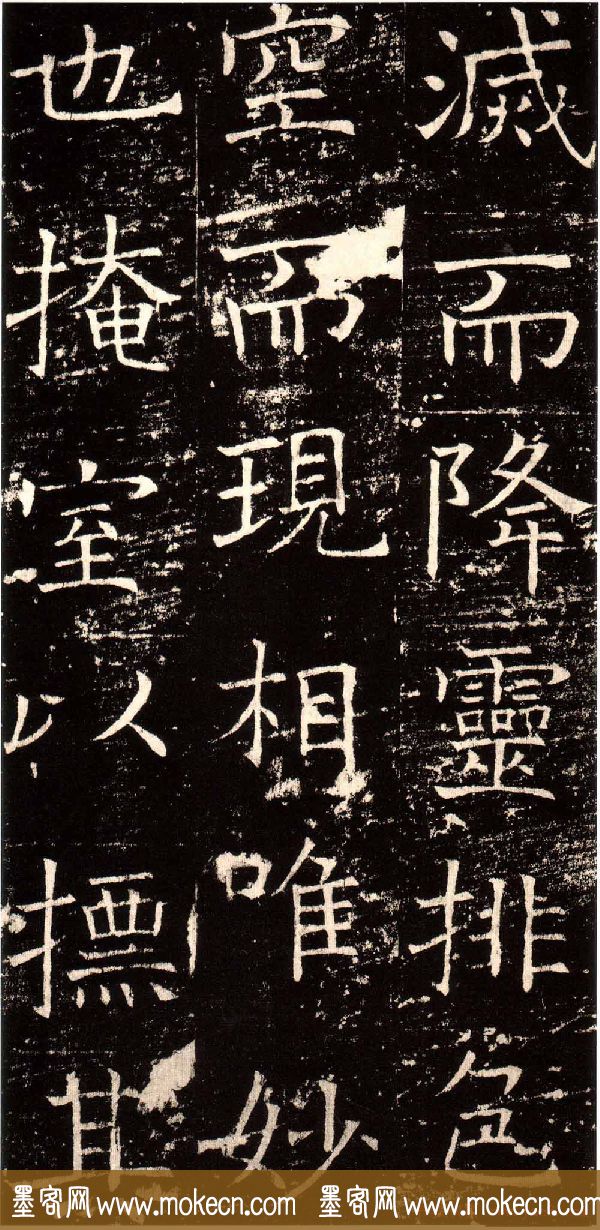 滅而降靈排色
空而現相唯妙
也掩室以摽其
墨客网 www.mokecn.com 墨客网 www.mokecn.com